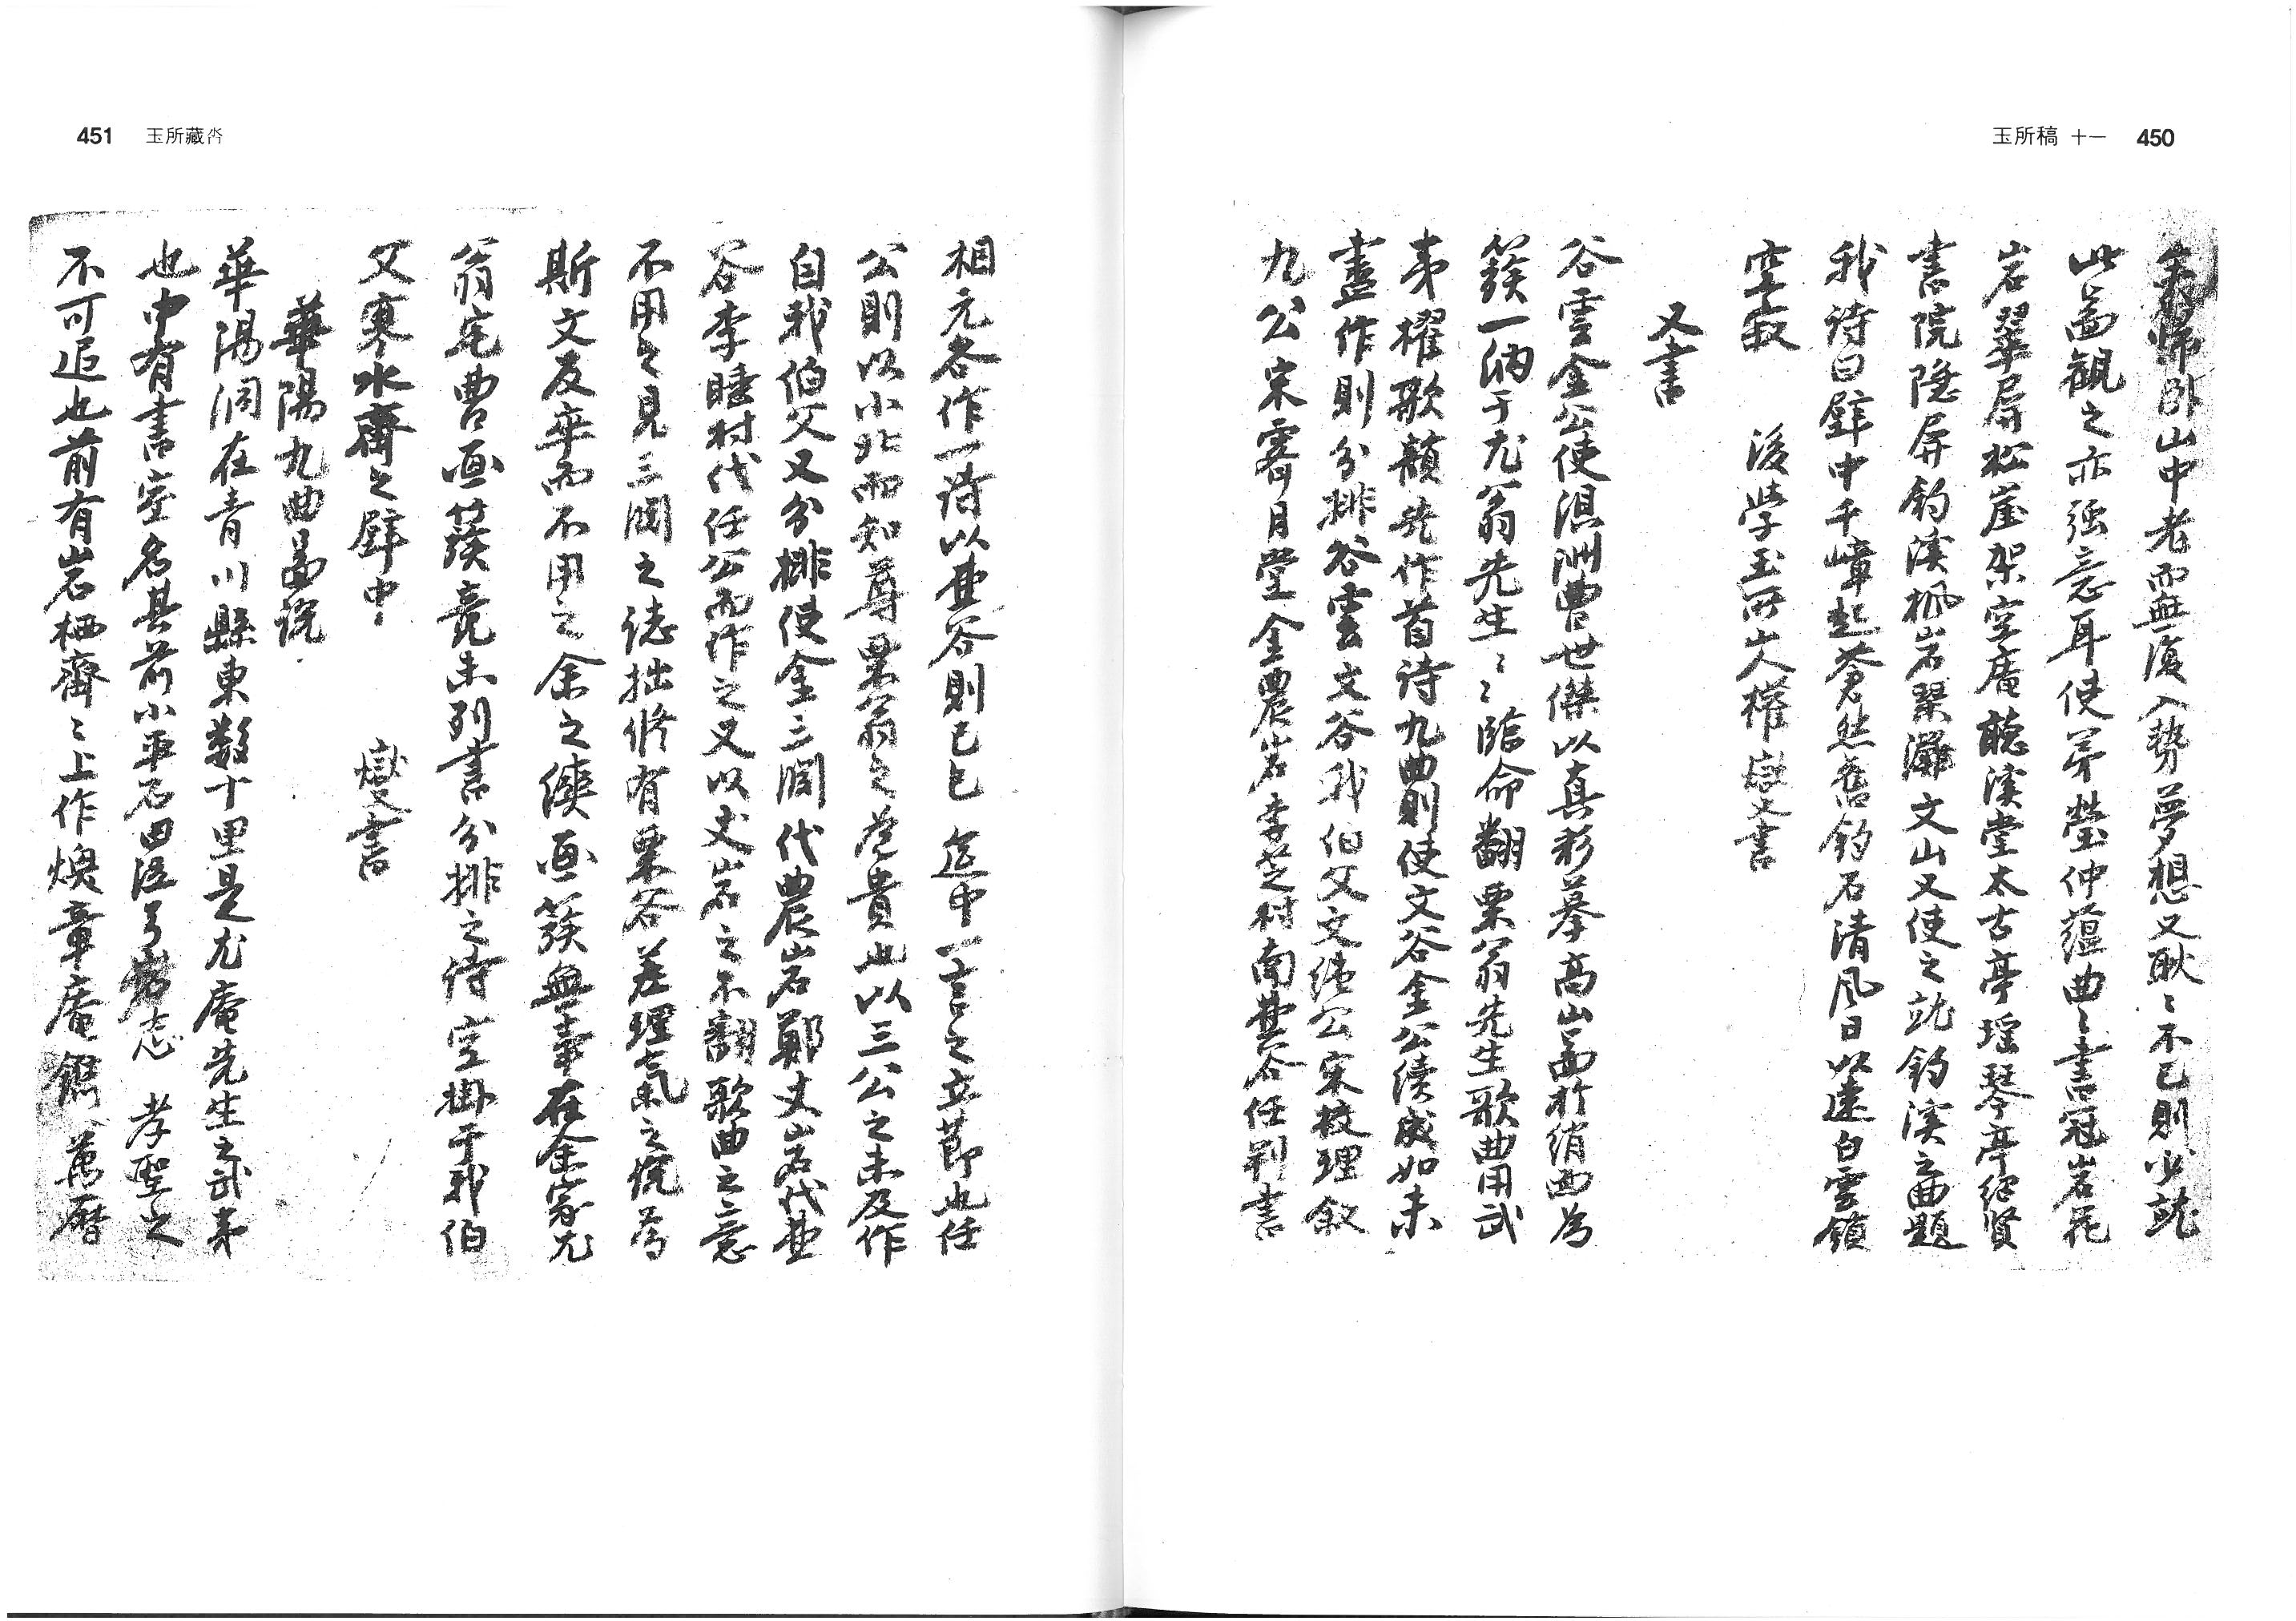 玉所稿 十一 450
帰臥山中老而無復入勢夢想又耿〻不已則少說
此啚觀之亦强意耳使芽瑩仲蘊曲〻書冠岩花
岩翠屛松崖架空庵聽溪堂太古亭瑤琴亭紹賢
書院隱屛釣溪楓岩琴灘文山又使之說釣溪之曲題
我诗曰壁中千嶂起蒼然舊釣石清風日以遠白雲鎖
空寂 後學玉所山人權燮書
又書
谷雲金公使浿洲曺世傑以真彩摹高山啚於綃西為
簇一納于尤翁先生〻〻臨命翻栗翁先生歌曲用武
夷櫂歌韻先作首诗九曲則使文谷金公續成如未
盡作則分排谷雲文谷我伯父文純公宋校理叙
九公宋霽月堂金農岩李芝村南壺谷任判書
451 玉所藏呇
相元各作一诗以壺谷則己巳 一言之立節也任
公則以小北而知尊栗翁之 貴也以三公之未及作
自我伯父又分排使金三淵代農岩鄭丈岩代壺
谷李睡村代任公而作之又以丈岩之不翻歌曲之意
不用之見三淵之 拙修有栗谷差理氣之說為
斯文反卒而不用之余之傔画簇無事在余家尤
翁宅曺画簇竟未列書分排之诗空掛于我伯
父寒水齋之壁中 燮書
華陽九曲啚說
華陽洞在青川縣東數十里是尤庵先生之武夷
也中有書室名其前小平石曰泣弓岩志 孝聖之
不可追也前有岩栖齋〻上作煥章庵鐫 萬曆